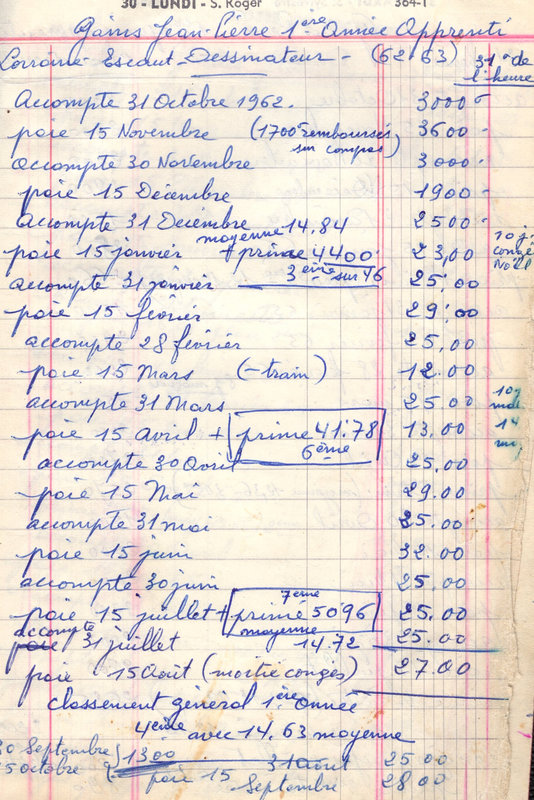 30 - LUNDI - S. Roger 364-1
Gains Jean-Pierre 1ère Année Apprenti
Lorraine-Escaut-Dessinateur - (62.63) 31° de l'heure
Accompte 31 Octobre 1962. 3000 -
paie 15 Novembre (1700 remboursés sur compas) 3600 -
accompte 30 Novembre 3000 -
paie 15 Décembre 1900 -
Accompte 31 Décembre 2500 -
moyenne 14,84
paie 15 janvier + prime 4400 23,00 10 j. congé Noël
3ème sur 46
accompte 31 janvier 25,00
paie 15 février 29,00
accompte 28 février 25,00
paie 15 Mars (- train) 12.00
accompte 31 Mars 25.00
paie 15 Avril + prime 41.78 13.00
6ème
accompte 30 Avril 25.00
paie 15 Maî 29.00
accompte 31 mai 25.00
paie 15 juin 32.00
accompte 30 juin 25.00
7ème
paie 15 juillet + prime 5096 25.00
moyenne 14.72
accompte 31 juillet 25.00
paie 15 Août (moitié congés) 27.00
classement général 1ère année
4ème avec 14.63 moyenne
30 Septembre 1300 31 août 25 00
15 octobre paie 15 Septembre 28 00